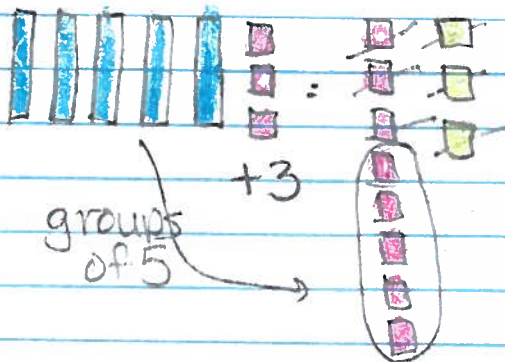 +3
groups
of 5